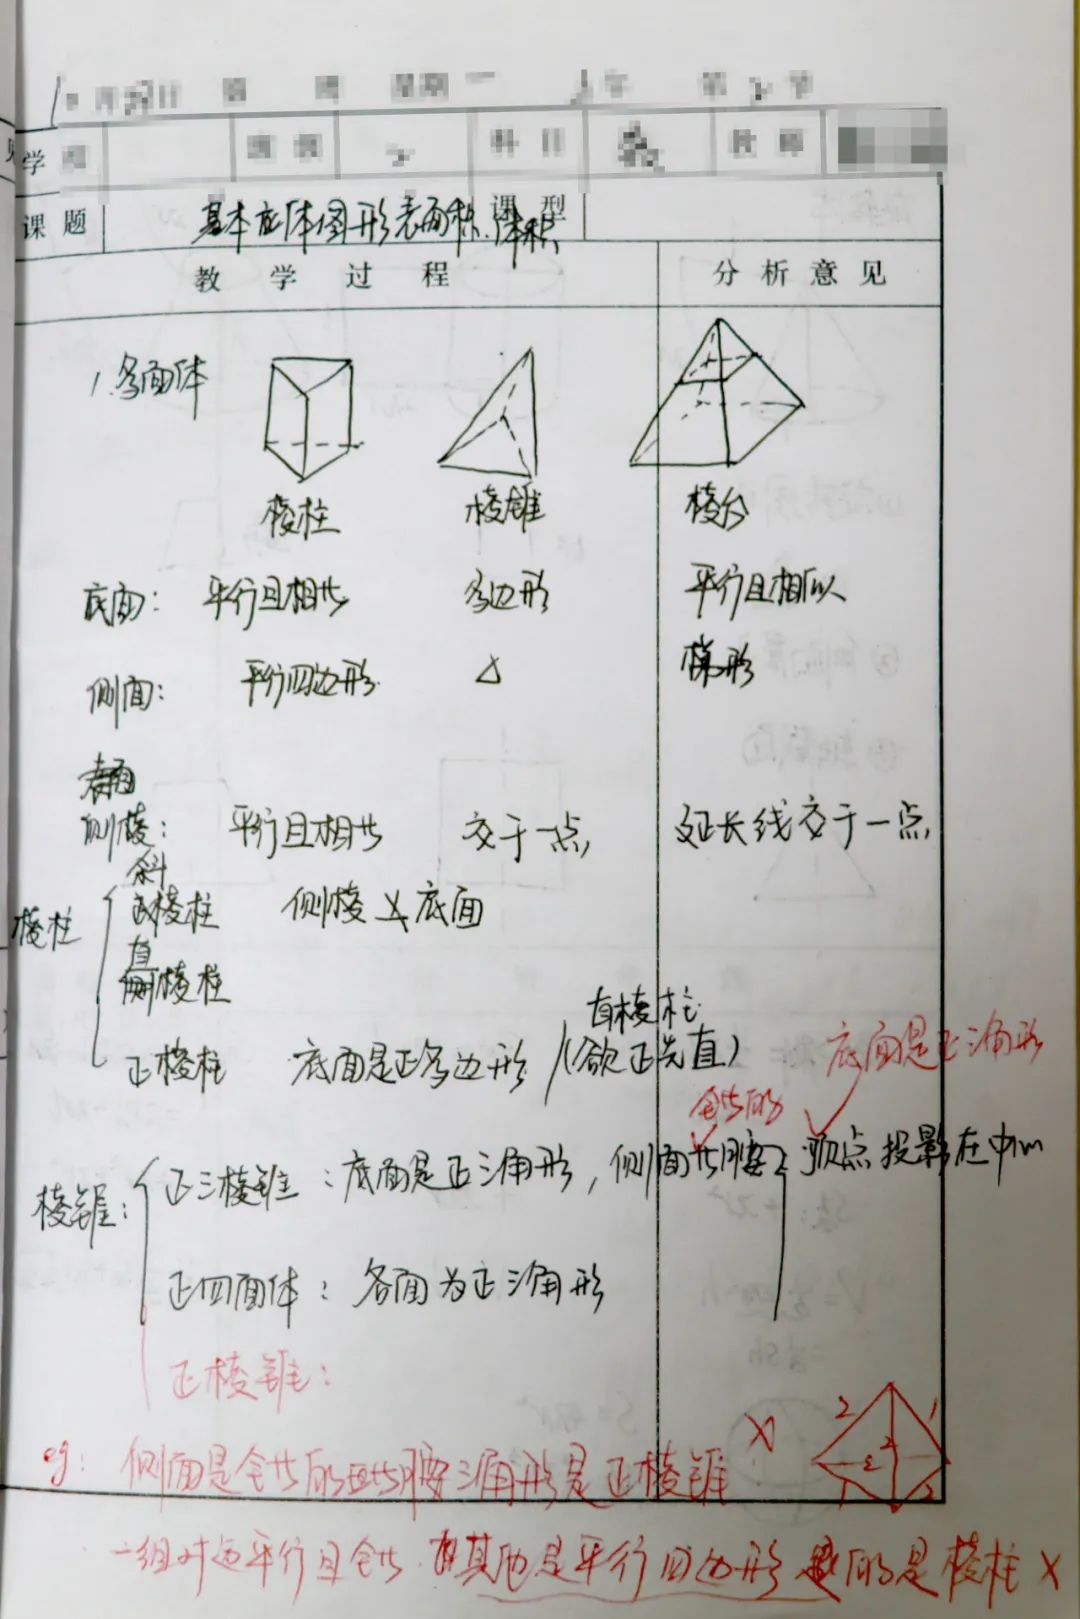 学
课题 基本立体图形表面积.体积 课型
教学过程 分析意见
1.多面体
棱柱 棱锥 棱台
底面: 平行且相等 多边形 平行且相似
侧面: 平行四边形 △ 梯形
侧棱: 平行且相等 交于一点, 延长线交于一点,
斜
棱柱 棱柱 侧棱 底面
直
棱柱
直棱柱
正棱柱 底面是正多边形 (欲正先直) 底面是正三角形
全等的
棱锥: 正三棱锥: 底面是正三角形, 侧面等腰 顶点投影在中心
正四面体: 各面为正三角形
正棱锥:
eg: 侧面是全等的等腰三角形是正棱锥 X
2 1 2 2 1 2
一组对边平行且全等.其他是平行四边形 的是棱柱 X